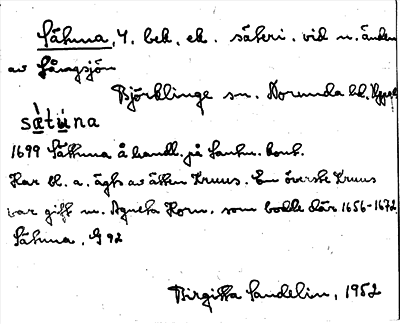 Sätuna, 4. bek. ek. säteri. vid n. änden
av Långsjön
Björklinge sn. Norunda hd. Uppl
sätúna
1699 Sättuna å handl. på Lantm. kont.
Har bl. a. ägts av ätten Kruus. En överste Kruus
var gift m. Agneta Horn. som bodde där 1656-1672
Sätuna, G 92
Birgitta Sandelin, 1952